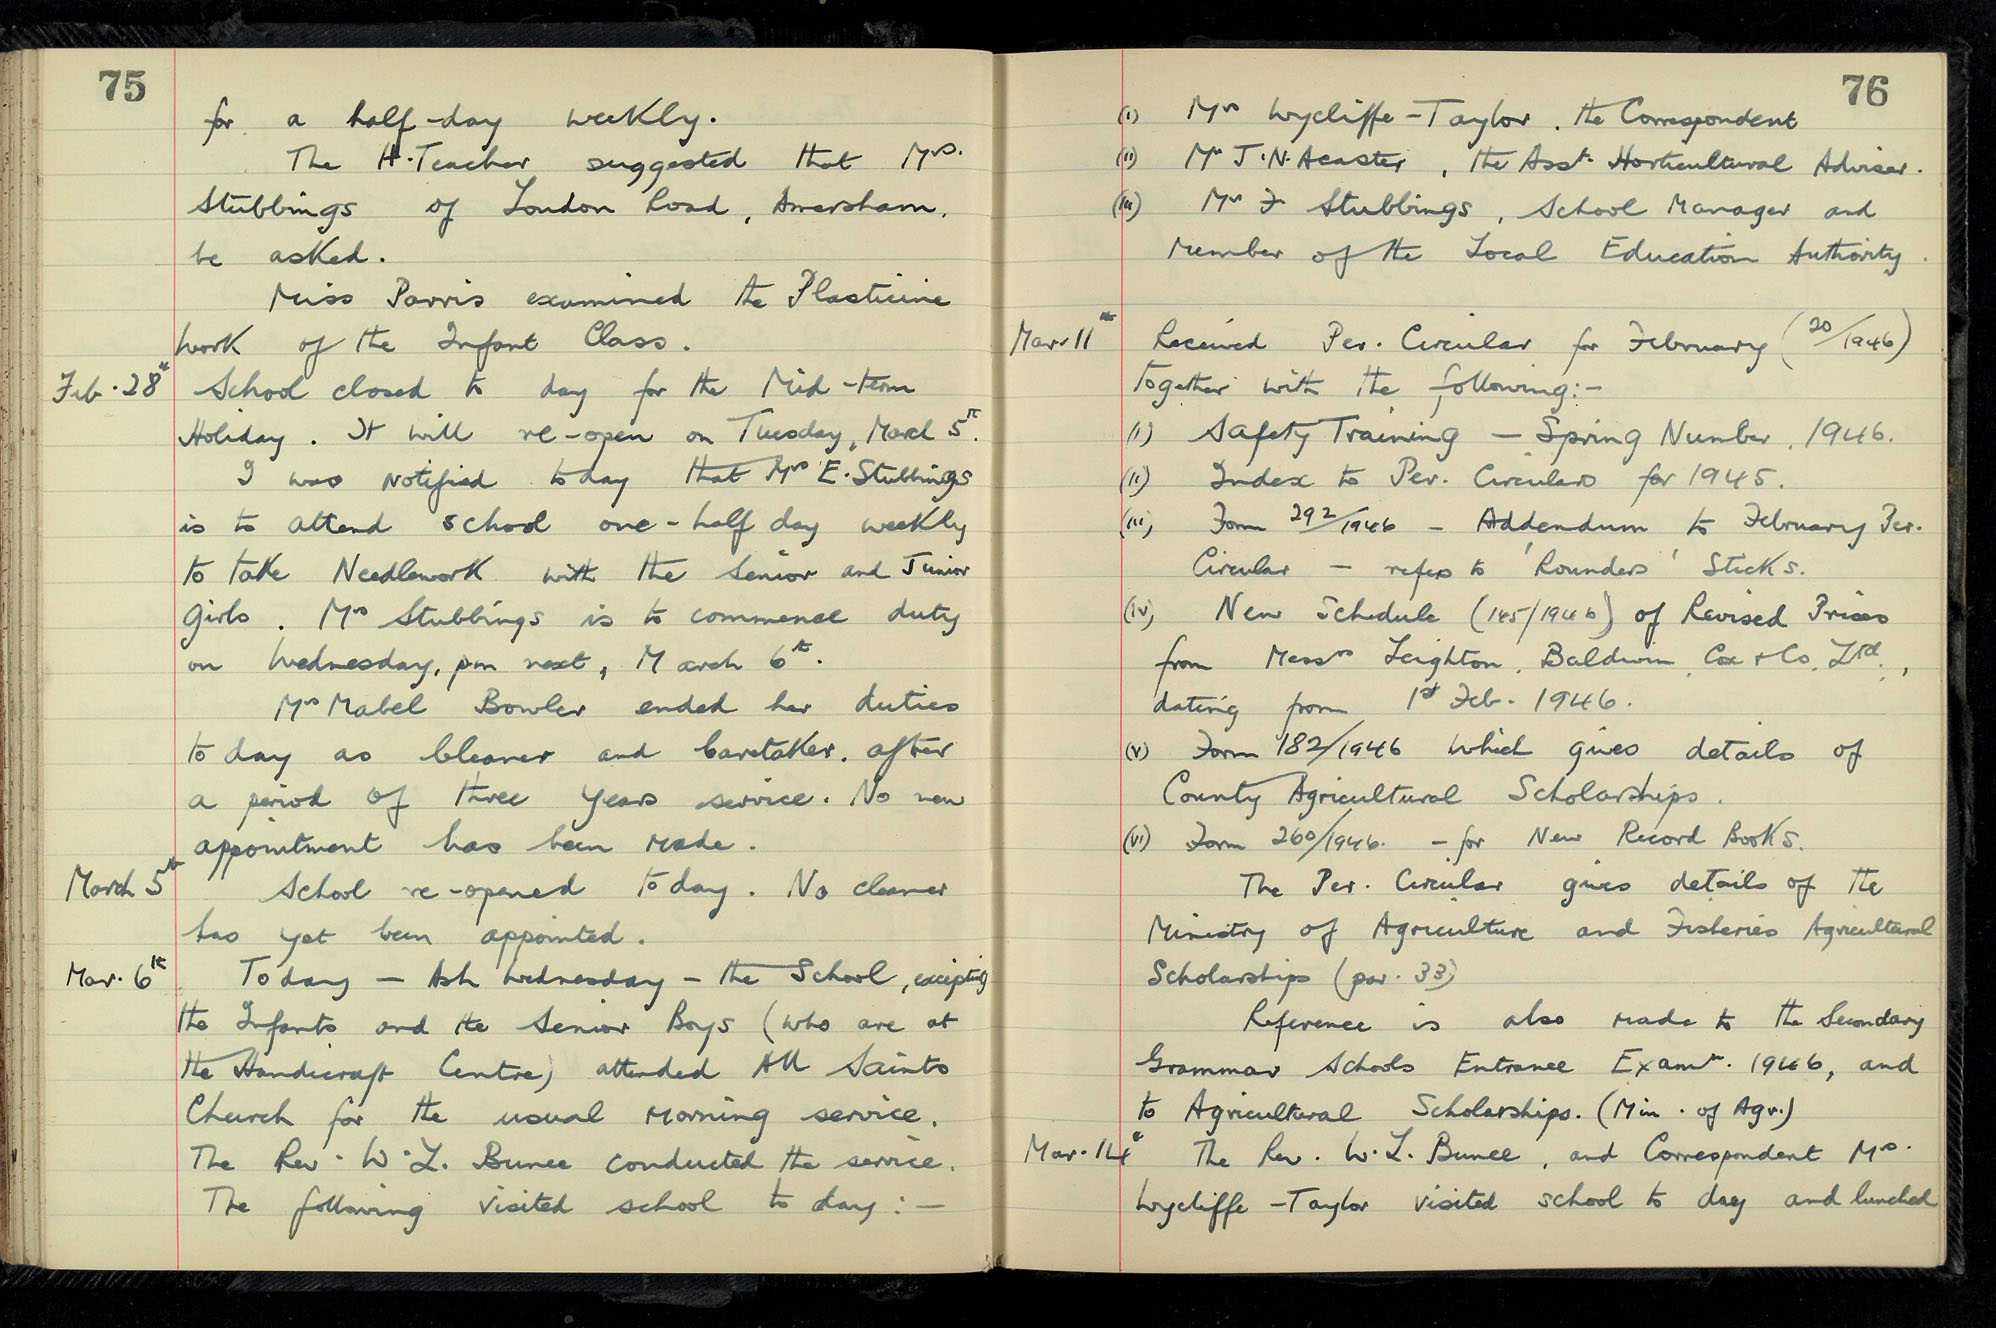 75
for a half-day weekly.
The H.Teacher suggested that Mrs.
Stubbings of London Road, Amersham,
be asked.
Miss Parris examined the Plasticine
work of the Infant Class.
Feb. 28th School closed to day for the Mid-term
Holiday. It will re-open on Tuesday, March 5th.
I was notified today that Mrs E. Stubbings
is to attend school one-half day weekly
to take Needlework with the Senior and Junior
Girls. Mrs Stubbings is to commence duty
on Wednesday, pm next, March 6th.
Mrs Mabel Bowler ended her duties
to day as Cleaner and Caretaker, after
a period of three years service. No new
appointment has been made.
March 5th School re-opened today. No cleaner
has yet been appointed.
Mar. 6th Today - Ash Wednesday - the School, excepting
the Infants and the Senior Boys (who are at
the Handicraft Centre) attended All Saints
Church for the usual morning service.
The Rev. W. L. Bunce conducted the service.
The following visited school to day:-
76
(i) Mrs Wycliffe-Taylor, the Correspondent
(ii) Mr J.N. Acaster, the Asst. Horticultural Adviser.
(iii) Mr F Stubbings, School Manager and
Member of the Local Education Authority.
Mar. 11th Received Per. Circular for February (20/1946)
together with the following:-
(i) Safety Training - Spring Number, 1946.
(ii) Index to Per. Circulars for 1945.
(iii) Form 292/1946 - Addendum to February Per.
Circular - refers to 'Rounders' Sticks.
(iv) New Schedule (145/1946) of Revised Prices
from Messrs Leighton, Baldwin, Cox & Co. Ltd.,
dating from 1st Feb. 1946.
(v) Form 182/1946 which gives details of
County Agricultural Scholarships.
(vi) Form 260/1946. - for New Record Books.
The Per. Circular gives details of the
Ministry of Agriculture and Fisheries Agricultural
Scholarships (par. 33)
Reference is also made to the Secondary
Grammar Schools Entrance Examn. 1946, and
to Agricultural Scholarships. (Min. of Agr.)
Mar. 14th The Rev. W. L. Bunce, and Correspondent Mrs.
Wycliffe-Taylor visited school to day and lunched